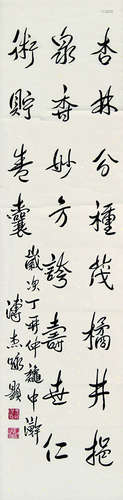 杏林分種茂橘井挹
泉香妙方誇壽世仁
術貯青囊
歲次丁卯仲龝中澣
溥杰敬題